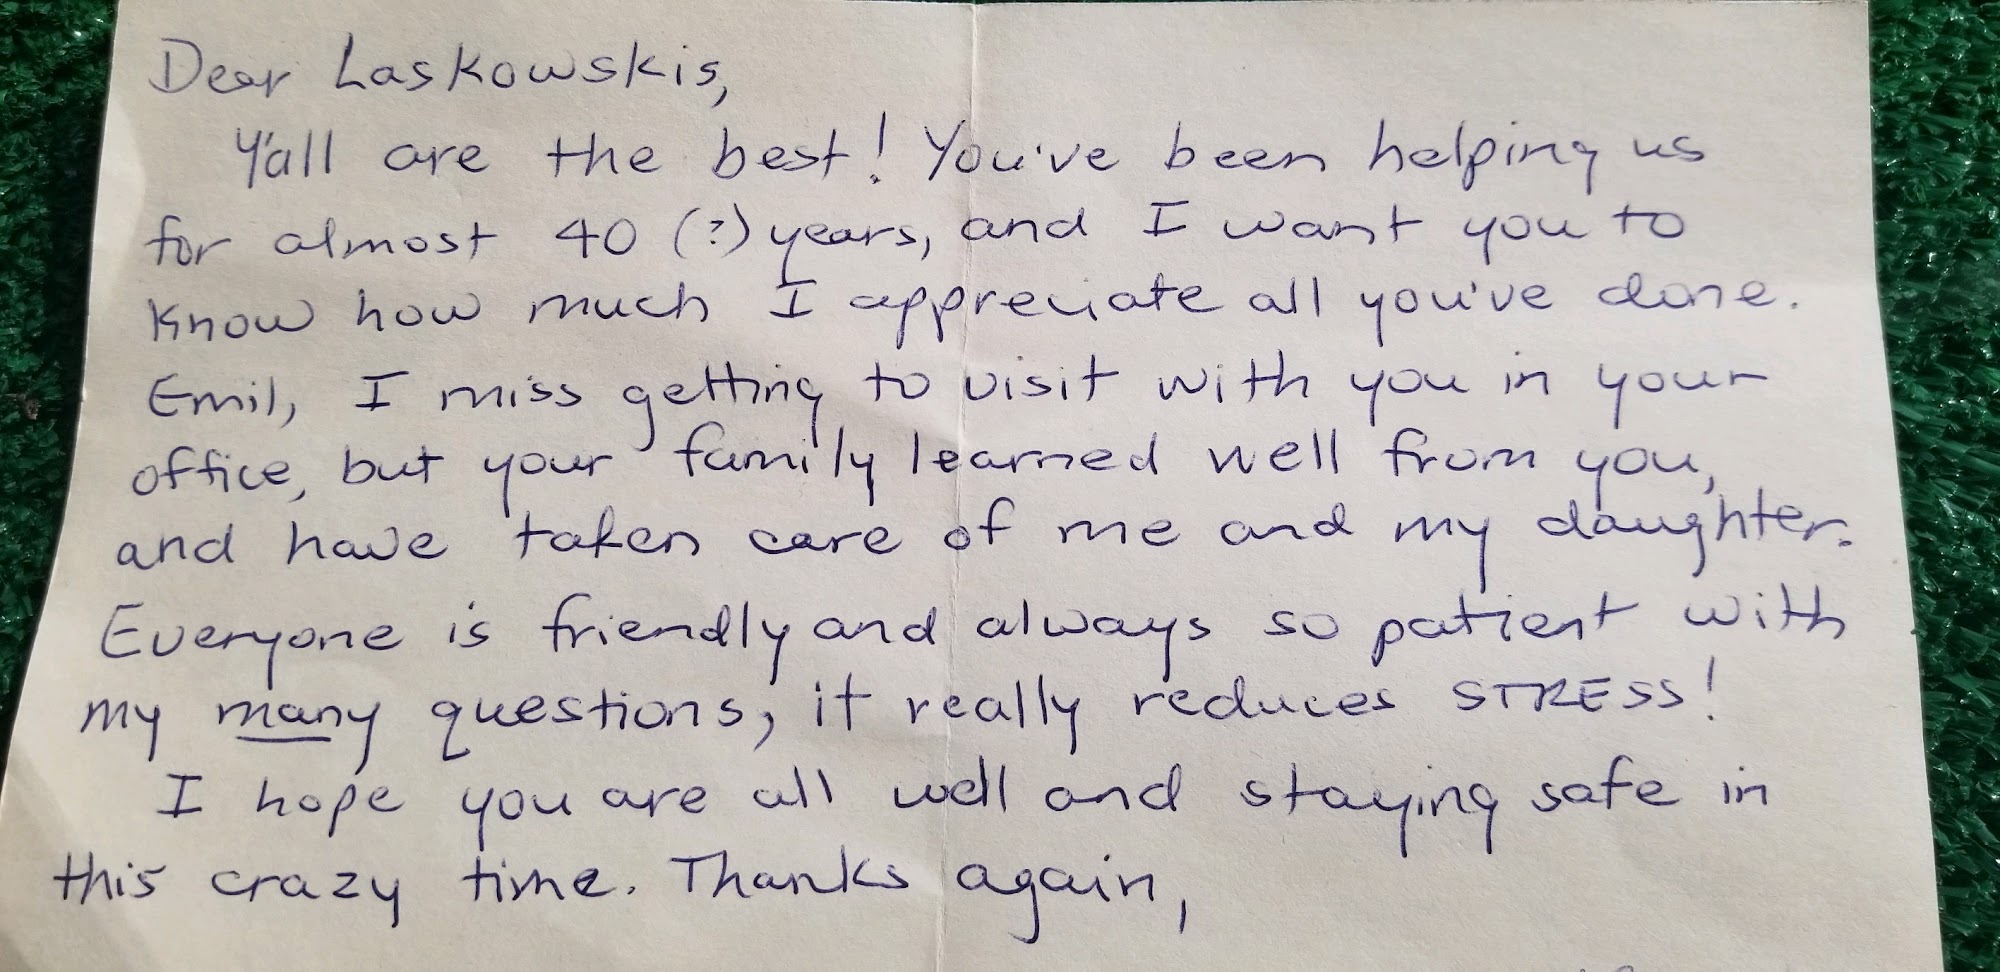 Dear Laskowskis,
Y'all are the best! You've been helping us
for almost 40 (?) years, and I want you to
know how much I appreciate all you've done.
Emil, I miss getting to visit with you in your
office, but your family learned well from you,
and have taken care of me and my daughter.
Everyone is friendly and always so patient with
my many questions, it really reduces STRESS!
I hope you are all well and staying safe in
this crazy time. Thanks again,